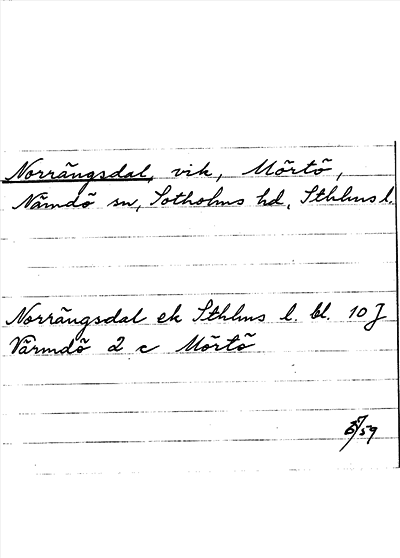 Norrängsdal, vik, Mörtö,
Nämdö sn, Sotholms hd, Sthlms l.
Norrängsdal ek Sthlms l. bl. 10 J
Värmdö 2 c Mörtö